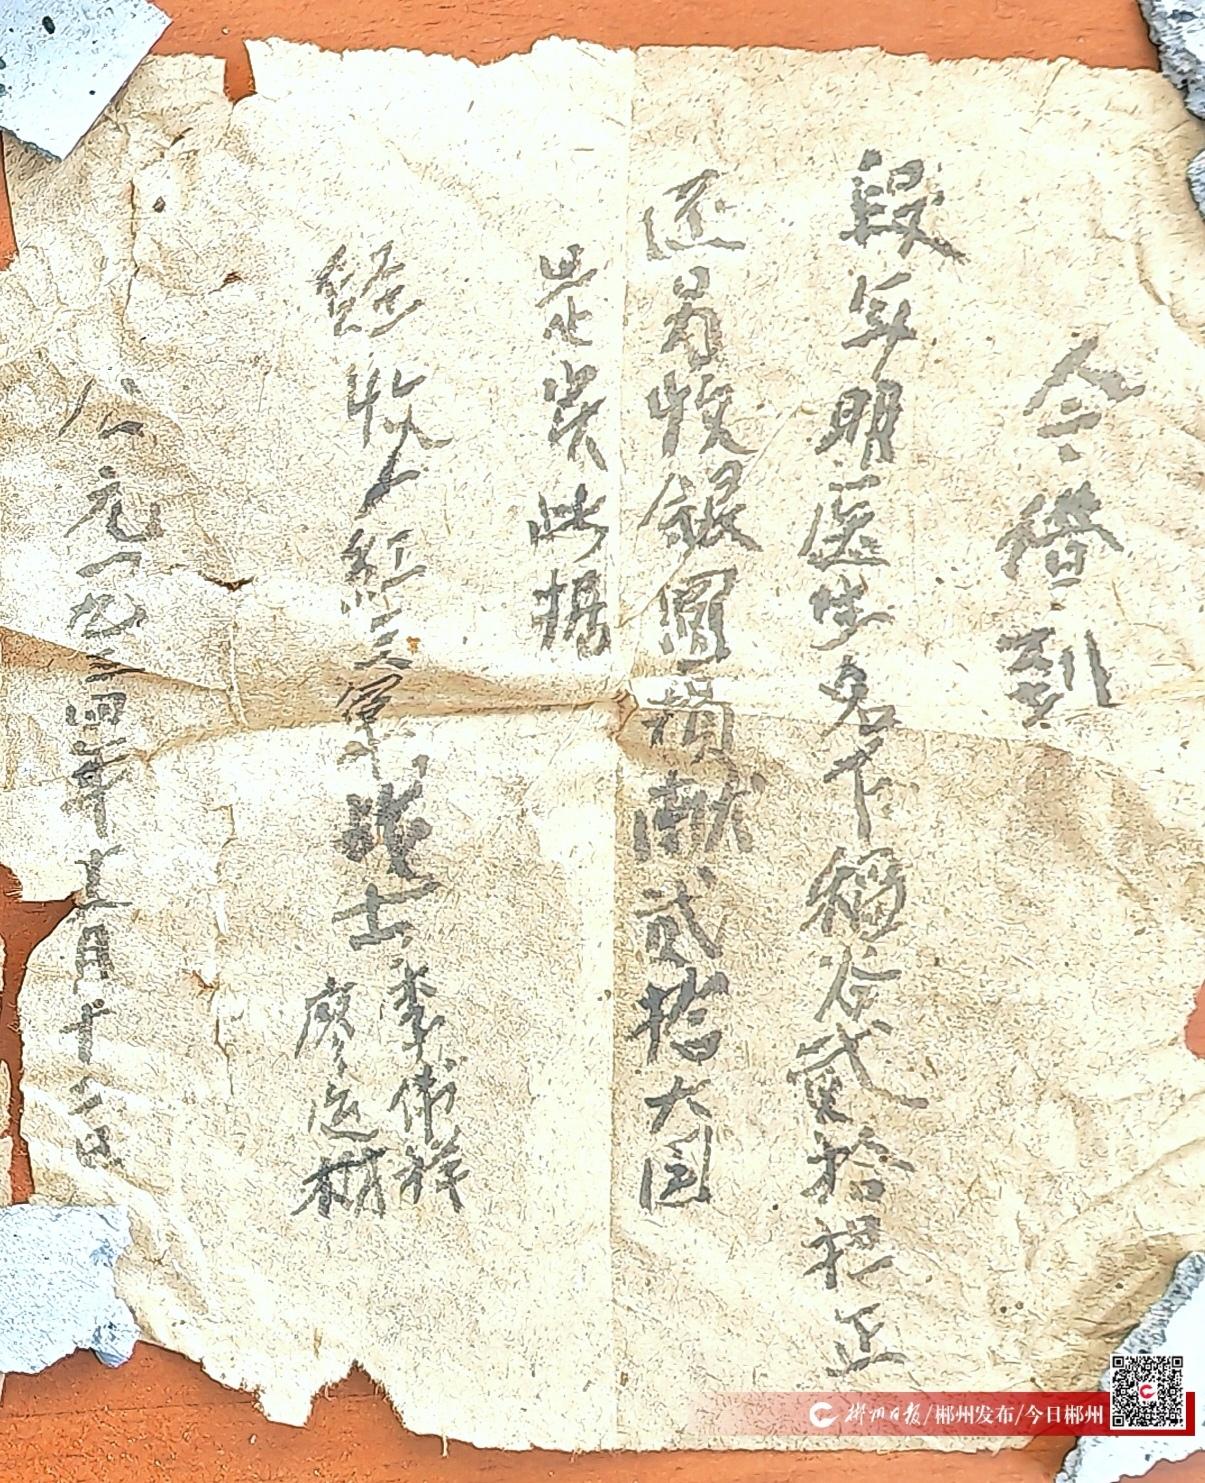 今借到
段年明医生名下稻谷貳拾担正
还另收銀圓捐献貳拾大国
是实此据
经收人红三军战士李衛祥
廖运材
公元一九三四年十二月十二日
郴州日报/郴州发布/今日郴州